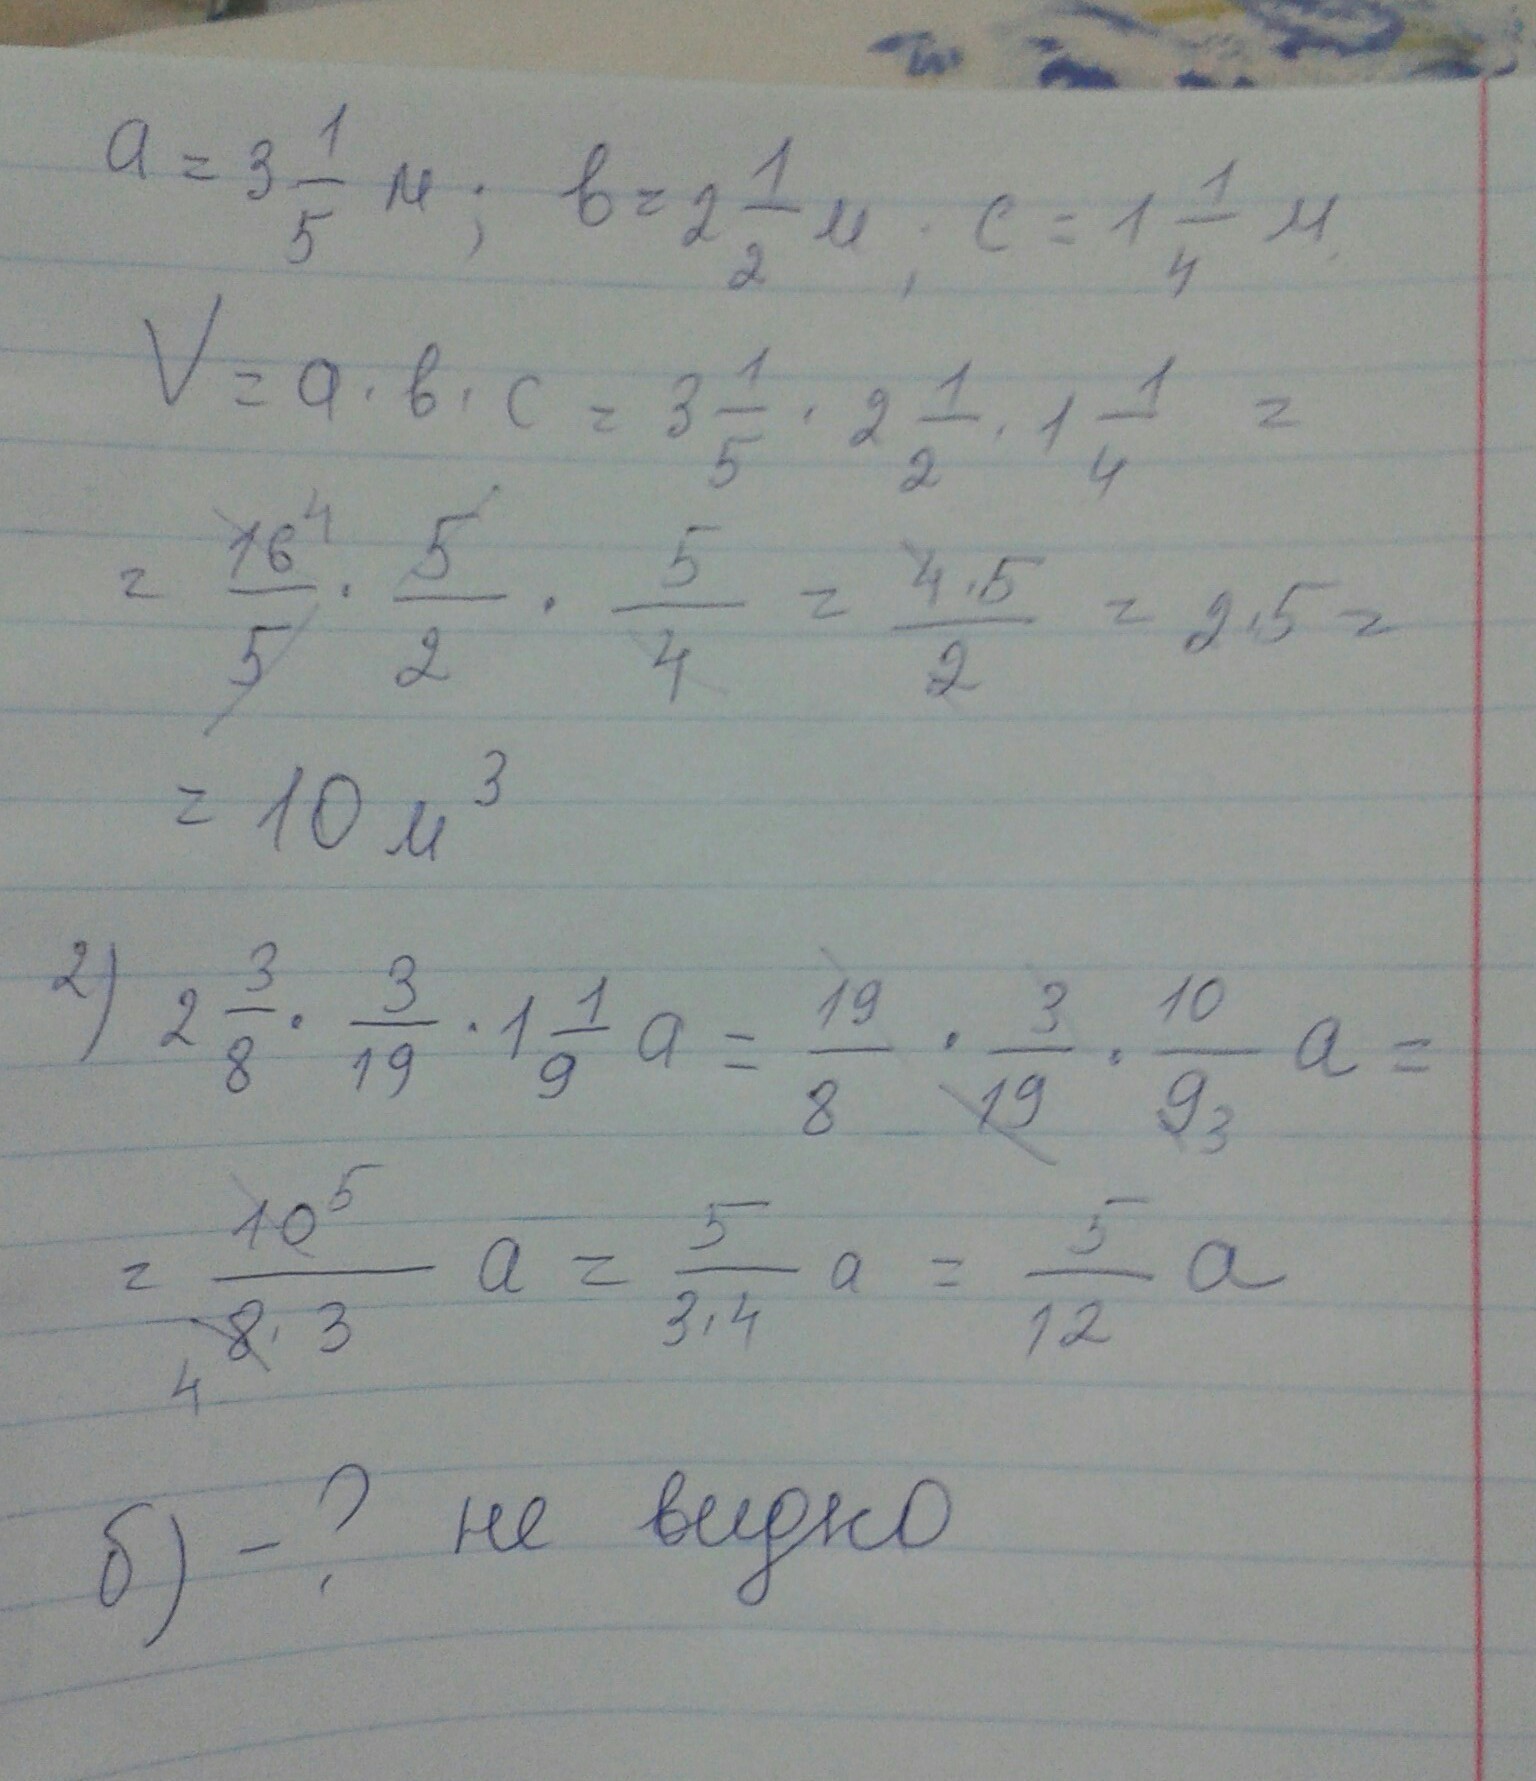 a = 3 1/5 м; в = 2 1/2 м; c = 1 1/4 м.
V = a · в · c = 3 1/5 · 2 1/2 · 1 1/4 =
= 16⁴/5 · 5/2 · 5/4 = 4·5/2 = 2·5 =
= 10 м³
2) 2 3/8 · 3/19 · 1 1/9 a = 19/8 · 3/19 · 10/9₃ a =
= 10⁵/8·3 a = 5/3·4 a = 5/12 a
4
б) – ? не видно